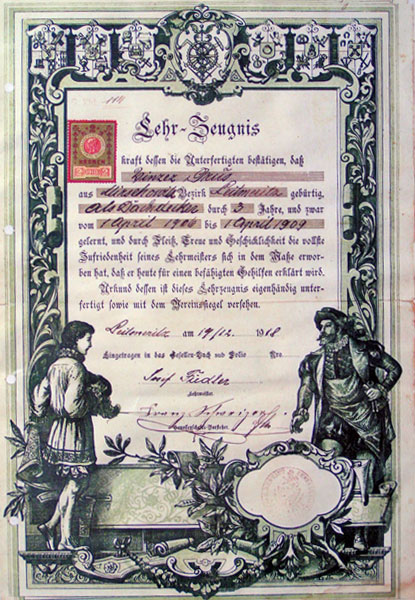 Lehr-Zeugnis
kraft dessen die Unterfertigten bestätigen, daß
aus Bezirk Leitmeritz gebürtig,
als Dachdecker durch 3 Jahre, und zwar
vom 1 April 1906 bis 1 April 1909
gelernt, und durch Fleiß, Treue und Geschicklichkeit die vollste
Zufriedenheit seines Lehrmeisters sich in dem Maße erwor-
ben hat, daß er heute für einen befähigten Gehilfen erklärt wird.
Urkund dessen ist dieses Lehrzeugnis eigenhändig unter-
fertigt sowie mit dem Vereinssiegel versehen.
Leitmeritz am 19/12. 1918
Eingetragen in das Gesellen-Buch sub Folio Nro
Josef Fiedler
Lehrmeister
Franz
Genossenschafts-Vorsteher.